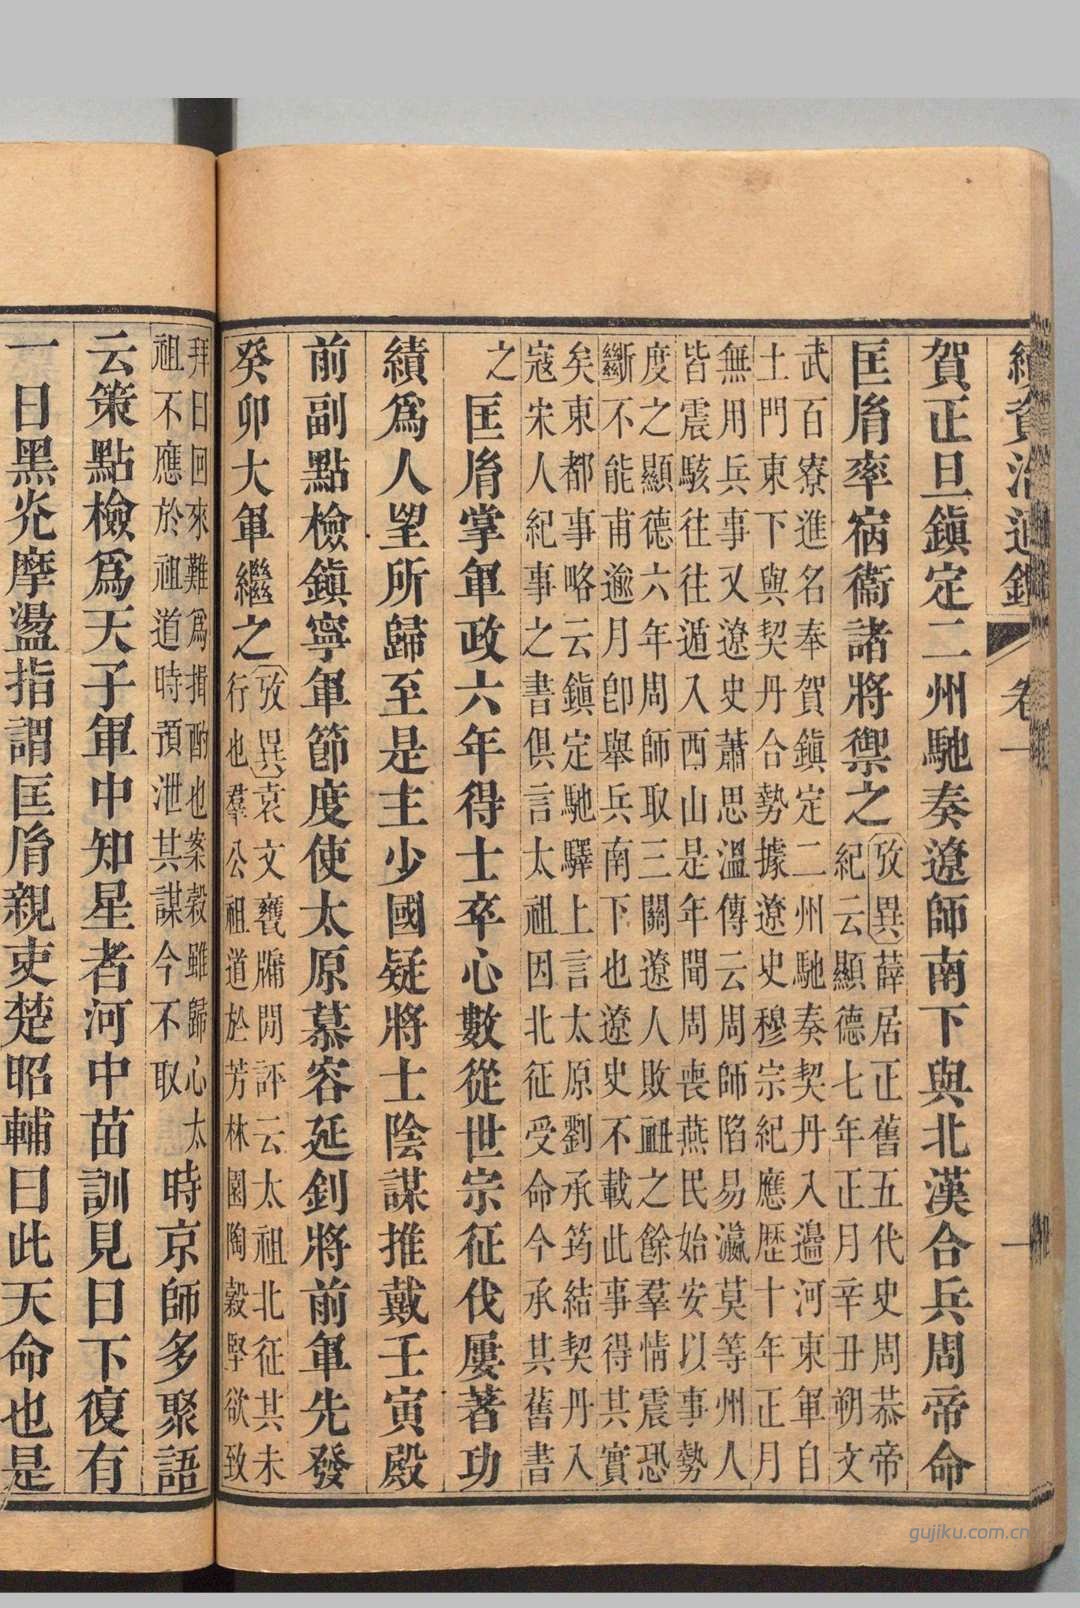 續資治通鑑 卷一 一
賀正旦鎮定二州馳奏遼師南下與北漢合兵周帝命
匡胤率宿衞諸將禦之
攷異薛居正舊五代史周恭帝
紀云顯德七年正月辛丑朔文
武百寮進名奉賀鎮定二州馳奏契丹入邊河東軍自
土門東下與契丹合勢據遼史穆宗紀應歷十年正月
無用兵事又遼史蕭思溫傳云周師陷易瀛莫等州人
皆震駭往往遁入西山是年聞周喪燕民始安以事勢
度之顯德六年周師取三關遼人敗衂之餘羣情震恐
斷不能甫逾月卽舉兵南下也遼史不載此事得其實
矣東都事略云鎮定馳驛上言太原劉承筠結契丹入
寇宋人紀事之書俱言太祖因北征受命今承其舊書
之
匡胤掌軍政六年得士卒心數從世宗征伐屢著功
績爲人望所歸至是主少國疑將士陰謀推戴壬寅殿
前副點檢鎮寧軍節度使太原慕容延釗將前軍先發
癸卯大軍繼之
攷異袁文甕牖閒評云太祖北征其未
行也羣公祖道於芳林園陶穀堅欲致
拜曰回來難爲揖酌也案穀雖歸心太
祖不應於祖道時預泄其謀今不取
時京師多聚語
云策點檢爲天子軍中知星者河中苗訓見日下復有
一日黑光摩盪指謂匡胤親吏楚昭輔曰此天命也是
gujiku.com.cn